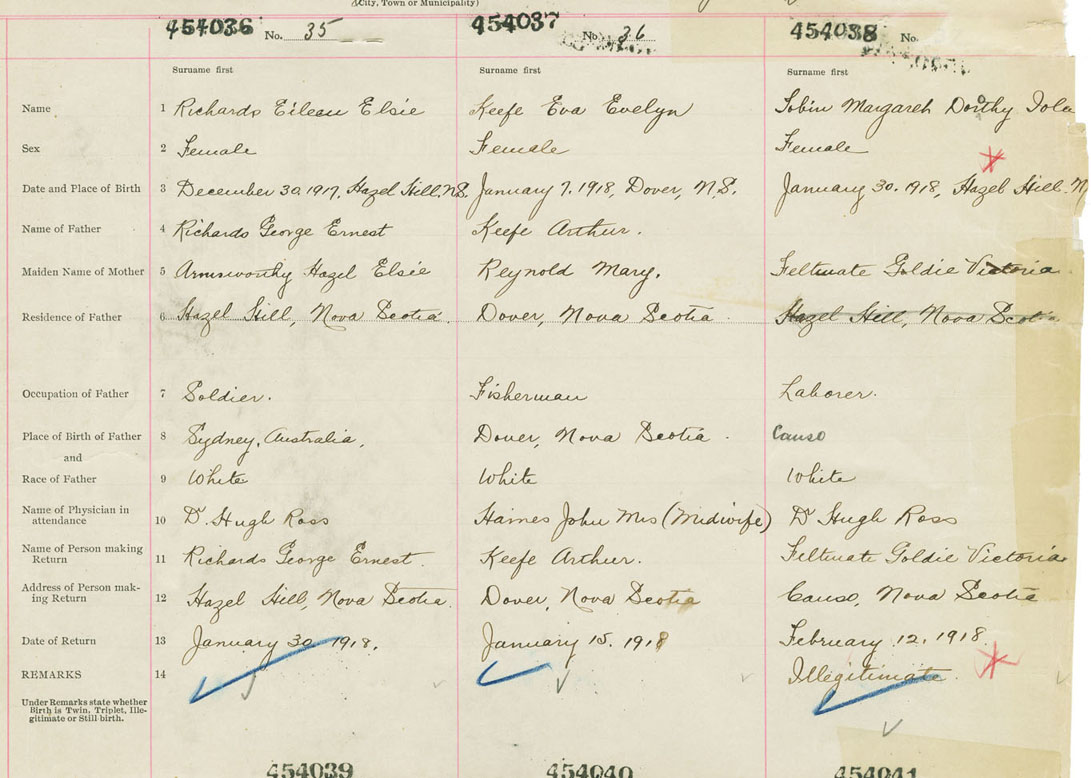 (City, Town or Municipality)
454036 No. 35
454037 No. 36
454038 No.
Surname first Surname first Surname first
Name 1 Richards Eileen Elsie Keefe Eva Evelyn Tobin Margareh Dorothy Iola
Sex 2 Female Female Female
Date and Place of Birth 3 December 30, 1917, Hazel Hill, N.S. January 7, 1918, Dover, N.S. January 30, 1918, Hazel Hill. N
Name of Father 4 Richards George Ernest Keefe Arthur.
Maiden Name of Mother 5 Armsworthy Hazel Elsie Reynold Mary. Feltmate Goldie Victoria
Residence of Father 6 Hazel Hill, Nova Scotia. Dover, Nova Scotia Hazel Hill, Nova Scotia
Occupation of Father 7 Soldier. Fisherman Laborer.
Place of Birth of Father 8 Sydney, Australia, Dover, Nova Scotia. Canso
and
Race of Father 9 White White White
Name of Physician in attendance 10 Dr. Hugh Ross Haines John Mrs (Midwife) Dr Hugh Ross
Name of Person making Return 11 Richards George Ernest. Keefe Arthur. Feltmate Goldie Victoria
Address of Person making Return 12 Hazel Hill, Nova Scotia. Dover, Nova Scotia Canso, Nova Scotia
Date of Return 13 January 30 1918. January 15. 1918 February 12. 1918
REMARKS 14 Illegitimate.
Under Remarks state whether
Birth is Twin, Triplet, Ille-
gitimate or Still birth.
454039 454040 454041